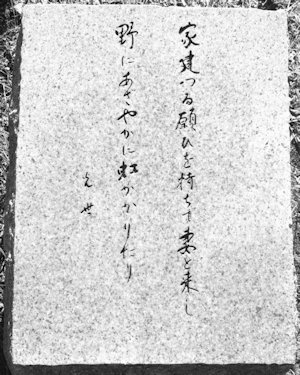 家建つる願ひを持ちて妻と来し
野にあざやかに虹かかりたり